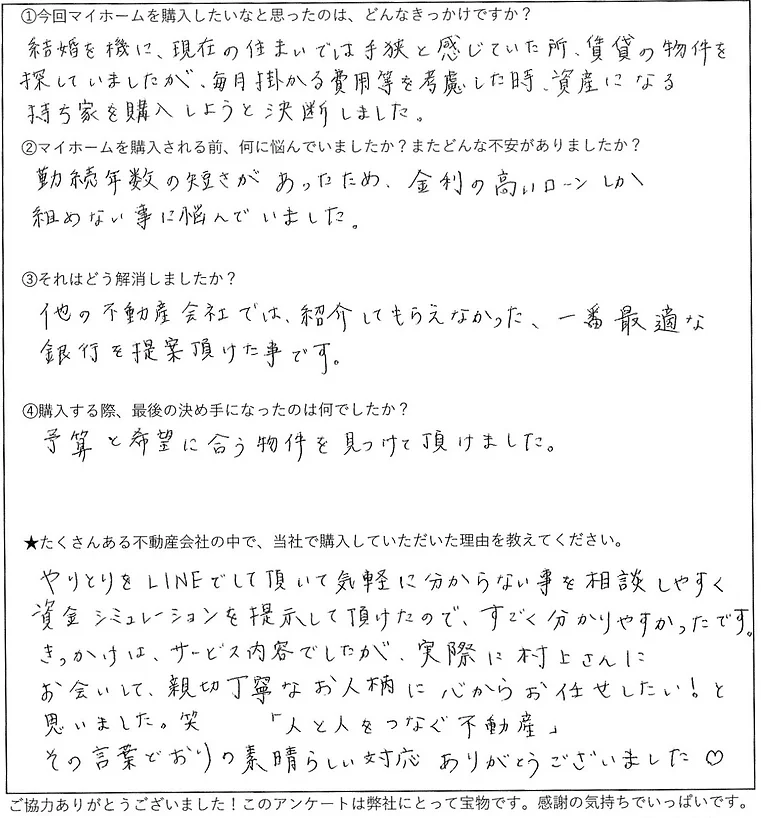 ①今回マイホームを購入したいなと思ったのは、どんなきっかけですか？
結婚を機に、現在の住まいでは手狭と感じていた所、賃貸の物件を
探していましたが、毎月掛かる費用等を考慮した時、資産になる
持ち家を購入しようと決断しました。
②マイホームを購入される前、何に悩んでいましたか？またどんな不安がありましたか？
勤続年数の短さがあったため、金利の高いローンしか
組めない事に悩んでいました。
③それはどう解消しましたか？
他の不動産会社では、紹介してもらえなかった、一番最適な
銀行を提案頂けた事です。
④購入する際、最後の決め手になったのは何でしたか？
予算と希望に合う物件を見つけて頂けました。
★たくさんある不動産会社の中で、当社で購入していただいた理由を教えてください。
やりとりをLINEでして頂いて気軽に分からない事を相談しやすく
資金シミュレーションを提示して頂けたので、すごく分かりやすかったです。
きっかけは、サービス内容でしたが、実際に村上さんに
お会いして、親切丁寧なお人柄に心からお任せしたい！と
思いました。笑 「人と人をつなぐ不動産」
その言葉どおりの素晴らしい対応ありがとうございました♡
ご協力ありがとうございました！このアンケートは弊社にとって宝物です。感謝の気持ちでいっぱいです。